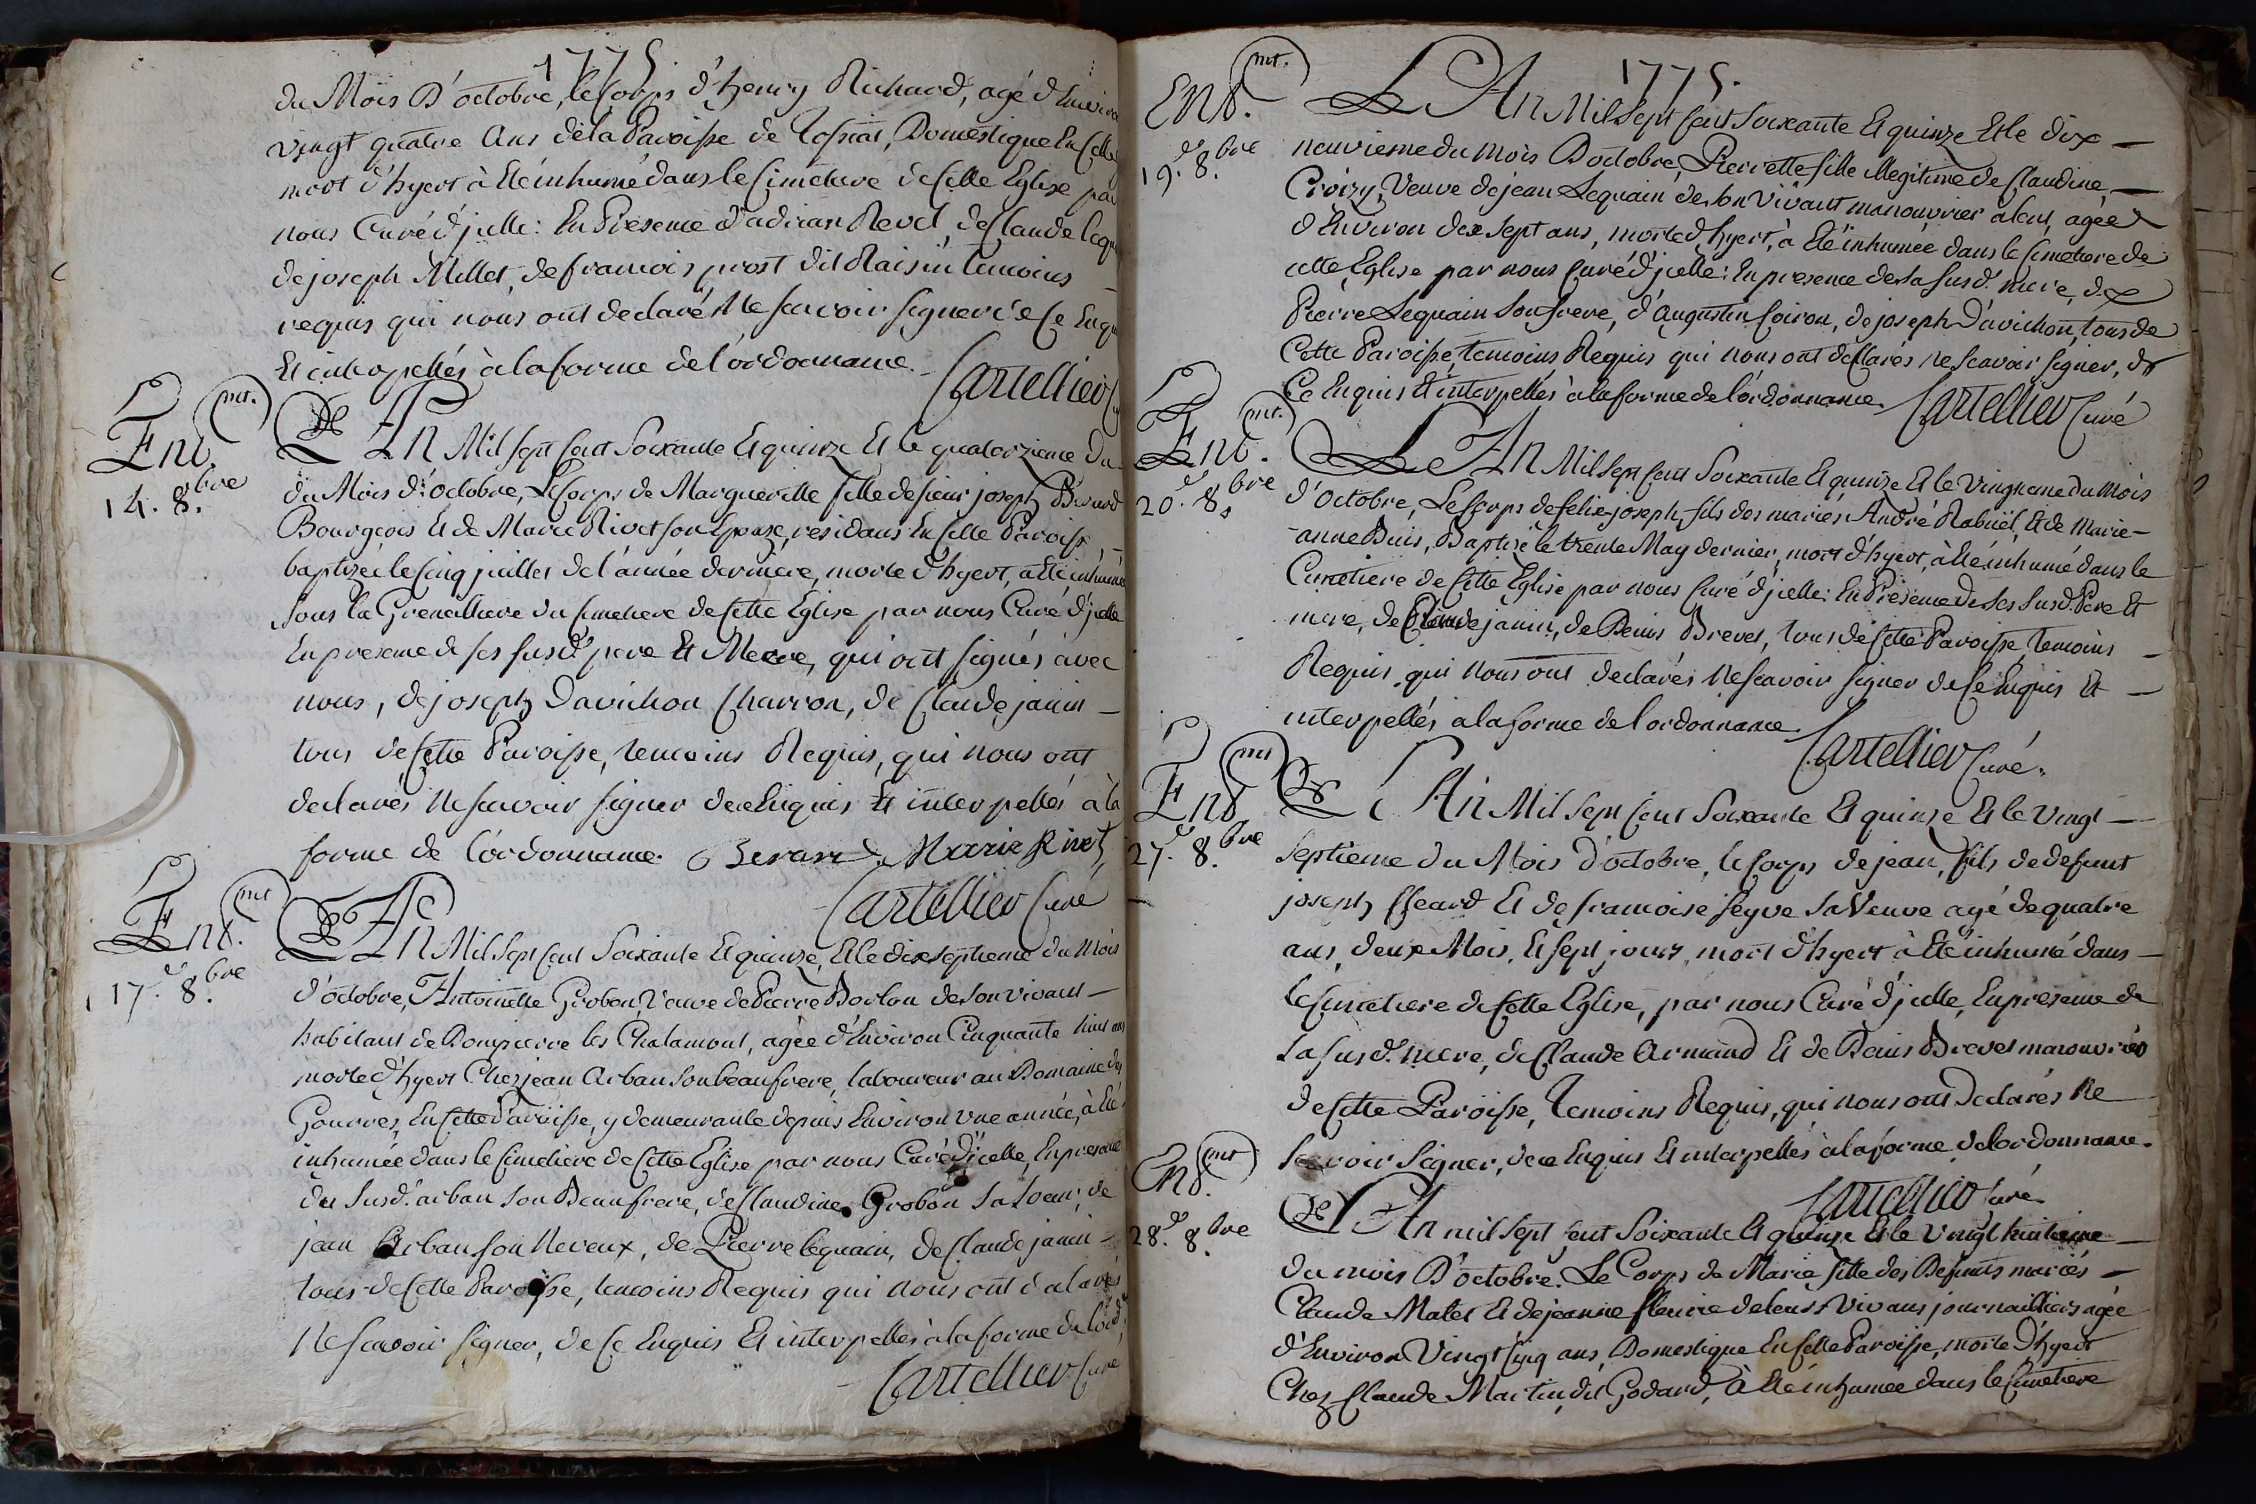 1775
du Mois D'octobre, le Corps d'henry Richard, agé d'Environ
vingt quatre Ans de la Paroisse de, Domestique En Cette
mort d'hyert à Eté inhumé dans le Cimetiere de Cette Eglise par
nous Curé d'jcelle: En Presence d'adrian Revel, de Claude lequ
de joseph Millet, de francois prost dit Raisin temoins
requis qui nous ont declarés Ne scavoir signer de Ce Enqu
Et interpellés à la forme de l'ordonnance. Cartellier
Ent.mt
14.e 8.bre
L'An Mil sept Cent Soixante Et quinze Et le quatorzieme du
du Mois d'octobre, Le Corps de Margueritte fille de sieur joseph Berard
Bourgeois Et de Marie Rivet son Epouze, residans En Cette Paroisse, -
baptizée le Cinq juillet de l'année derniere, morte d'hyert, à Eté inhumée
sous la Grenelliere du Cimetiere de Cette Eglise par nous Curé d'jcelle
En presence de ses susd. pere Et Mere, qui ont signés avec
nous, de joseph Davichon Charron, de Claude janin -
tous de Cette Paroisse, temoins Requis, qui nous ont
declarés Ne scavoir signer de ce Enquis Et interpellés à la
forme de l'ordonnance. Berard Marie Rivet
Cartellier Curé
Ent.mt
17.e 8.bre
L'An Mil Sept Cent Soixante Et quinze, Et le dix septieme du Mois
d'octobre, Antoinette Grobon, Veuve de Pierre Borlon de son vivant -
habitant de Dompierre les Chalamont, agée d'Environ Cinquante huit ans
morte d'hyert Chez jean Arban son beau frere, laboureur au Domaine des
Gourres, En Cette Paroisse, y demeurante depuis Environ une année, à Eté
inhumée dans le Cimetiere de Cette Eglise par nous Curé d'jcelle, En presence
du susd. arban son Beau frere, de Claudine Grobon sa soeur, de
jean Arban son Neveux, de Pierre lequain, de Claude janin -
tous de Cette Paroisse, temoins Requis qui nous ont declarés
Ne scavoir signer, de Ce Enquis Et interpellés à la forme de l'ord.
Cartellier Curé
1775.
Ent.mt
19.e 8.bre
L'An Mil Sept Cent Soixante Et quinze Et le dix -
neuvieme du Mois D'octobre, Pierrette fille illegitime de Claudine -
Croizy, Veuve de jean Lequain de son vivant manouvrier à leut, agée
d'Environ dix sept ans, morte d'hyert, à Eté inhumée dans le Cimetiere de
cette Eglise par nous Curé d'jcelle: En presence de sa susd. mere, de
Pierre Lequain son frere, d'Augustin Coiron, de joseph Davichon, tous de
Cette Paroisse, temoins Requis qui nous ont declarés ne scavoir signer, de
Ce Enquis Et interpellés à la forme de l'ordonnance. Cartellier Curé
Ent.mt
20.e 8.bre
L'An Mil Sept Cent Soixante Et quinze Et le Vingtieme du Mois
d'Octobre, Le Corps de Felie joseph, fils des mariés André Rabuel, Et de Marie -
anne Buis, Baptizé le trente May dernier, mort d'hyert, à Eté inhumé dans le
Cimetiere de Cette Eglise par nous Curé d'jcelle: En Presence de Ses susd. Pere Et
mere, de Claude janin, de Benis Brevet, tous de Cette Paroisse, temoins -
Requis qui nous ont declarés Ne scavoir signer de Ce Enquis Et -
interpellés à la forme de l'ordonnance
Cartellier Curé.
Ent.mt
27.e 8.bre
L'An Mil Sept Cent Soixante Et quinze Et le Vingt -
septieme du Mois d'octobre, le Corps de jean, fils de defunt
joseph Et de francoise seyve sa Veuve agé de quatre
ans, deux Mois, Et sept jours, mort d'hyert à Eté inhumé dans -
le Cimetiere de Cette Eglise, par nous Curé d'jcelle, En presence de
sa susd. mere, de Claude Armand Et de Benis Brevet manouvriés
de Cette Paroisse, Temoins Requis, qui nous ont Declarés Ne
scavoir Signer, de ce Enquis Et interpellés à la forme de l'ordonnance.
Cartellier Curé
Ent.mt
28.e 8.bre
L'An mil sept cent Soixante Et quinze Et le Vingt huitieme -
du mois D'octobre. Le Corps de Marie fille des Defunts mariés -
Claude Matet Et de jeanne fleurie de leurs Vivans journailliers agée
d'Environ Vingt Cinq ans, Domestique En Cette Paroisse, morte D'hyert
Chez Claude Martin dit Godard, à Eté inhumée dans le Cimetiere